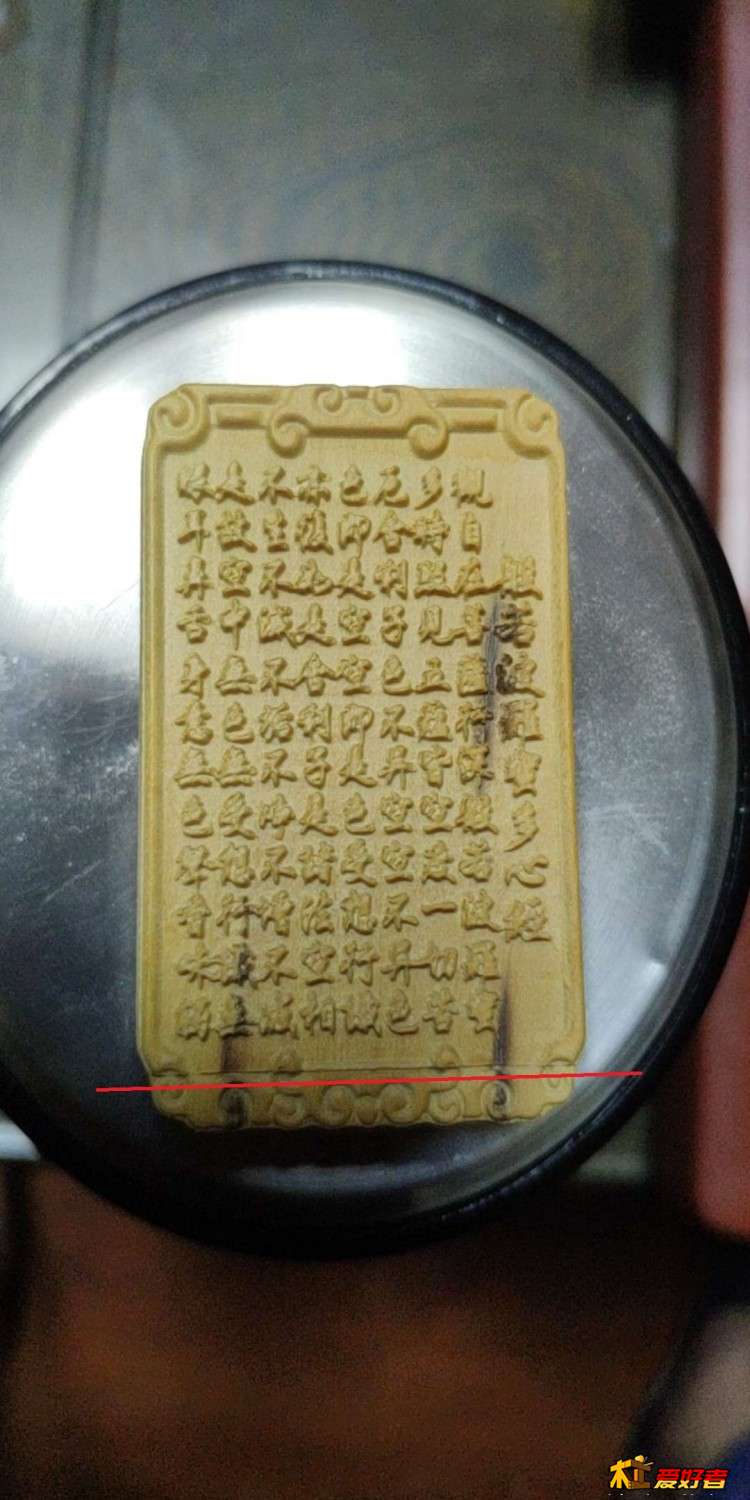 般若波羅蜜多心經
觀自在菩薩行深般若波羅蜜
多時照見五蘊皆空度一切苦
厄舍利子色不异空空不异色
色即是空空即是色受想行識
亦復如是舍利子是諸法空相
不生不滅不垢不淨不增不減
是故空中無色無受想行識無
眼耳鼻舌身意無色聲香味觸
木工爱好者